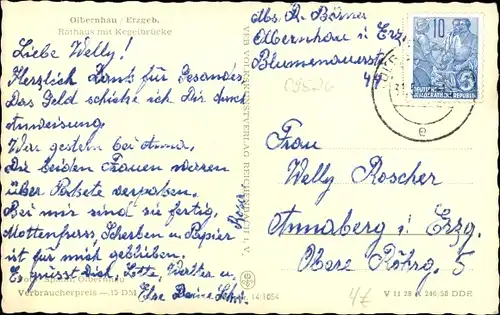 Olbernhau / Erzgeb.
Rathaus mit Kegelbrücke
Liebe Welly!
Herzlich Dank für Gesandes
Das Geld schicke ich Dir durch
Anweisung.
War gestern bei Anna.
Die beiden Frauen waren
über Pakete
Bei mir sind sie fertig.
Mottenfrass Scherben u. Papier
ist für mich geblieben.
Es grüsst Dich, Lotte, Walter u.
Else Deine Schw.
Rosa
Olbernhau
Verbraucherpreis —.15 DM
VEB VOLKSKUNSTVERLAG REICHENBACH I. V.
14/1054
Abs. R. Börner
Olbernhau i Erzg.
Blumenauerstr
44
09526
10
DEUTSCHE
DEMOKRATISCHE REPUBLIK
e
Frau
Welly Roscher
Annaberg i. Erzg.
Obere Röhrg. 5
4€
V 11 28 A 246/58 DDR